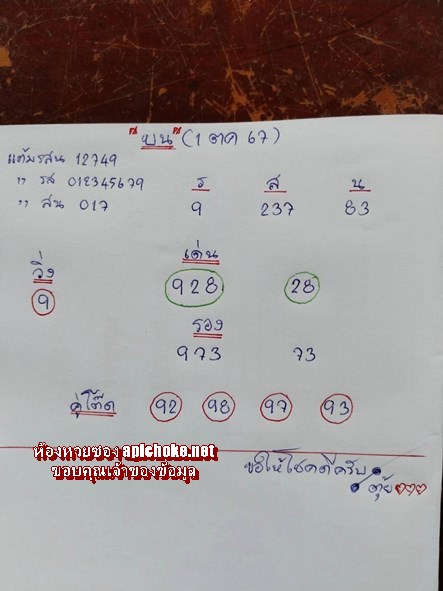 "บน" (1 ตค 67)
แต้มรสน 12749
" รส 012345679
" สน 017
ร ส น
9 237 83
เด่น
วิ่ง
9 928 28
รอง
973 73
คู่โต๊ด 92 98 97 93
ห้องหวยซอง apichoke.net
ขอบคุณเจ้าของข้อมูล
ขอให้โชคดีครับ
ตุ้ย